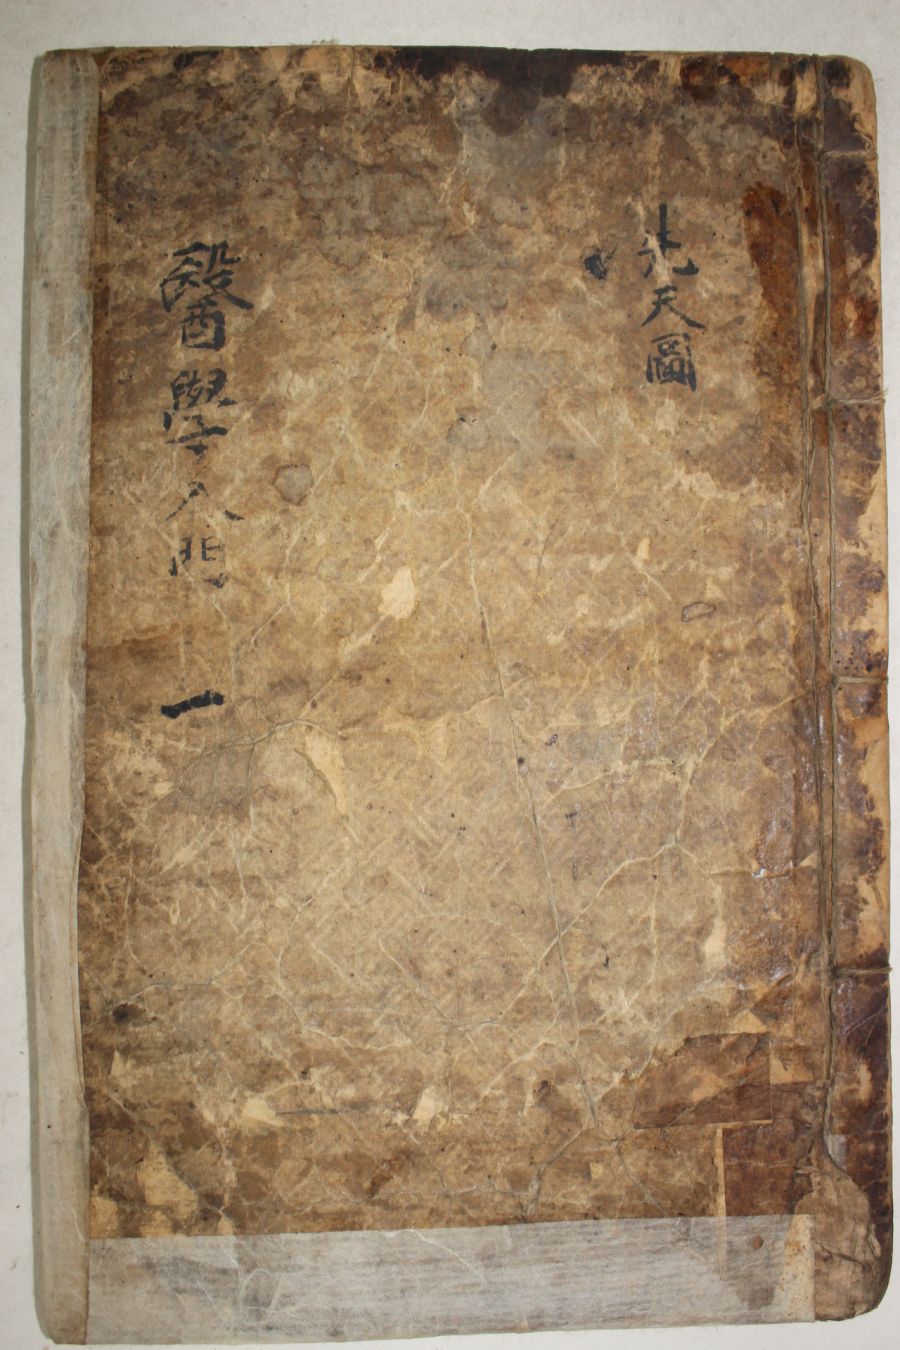 先天圖
醫學入門
一